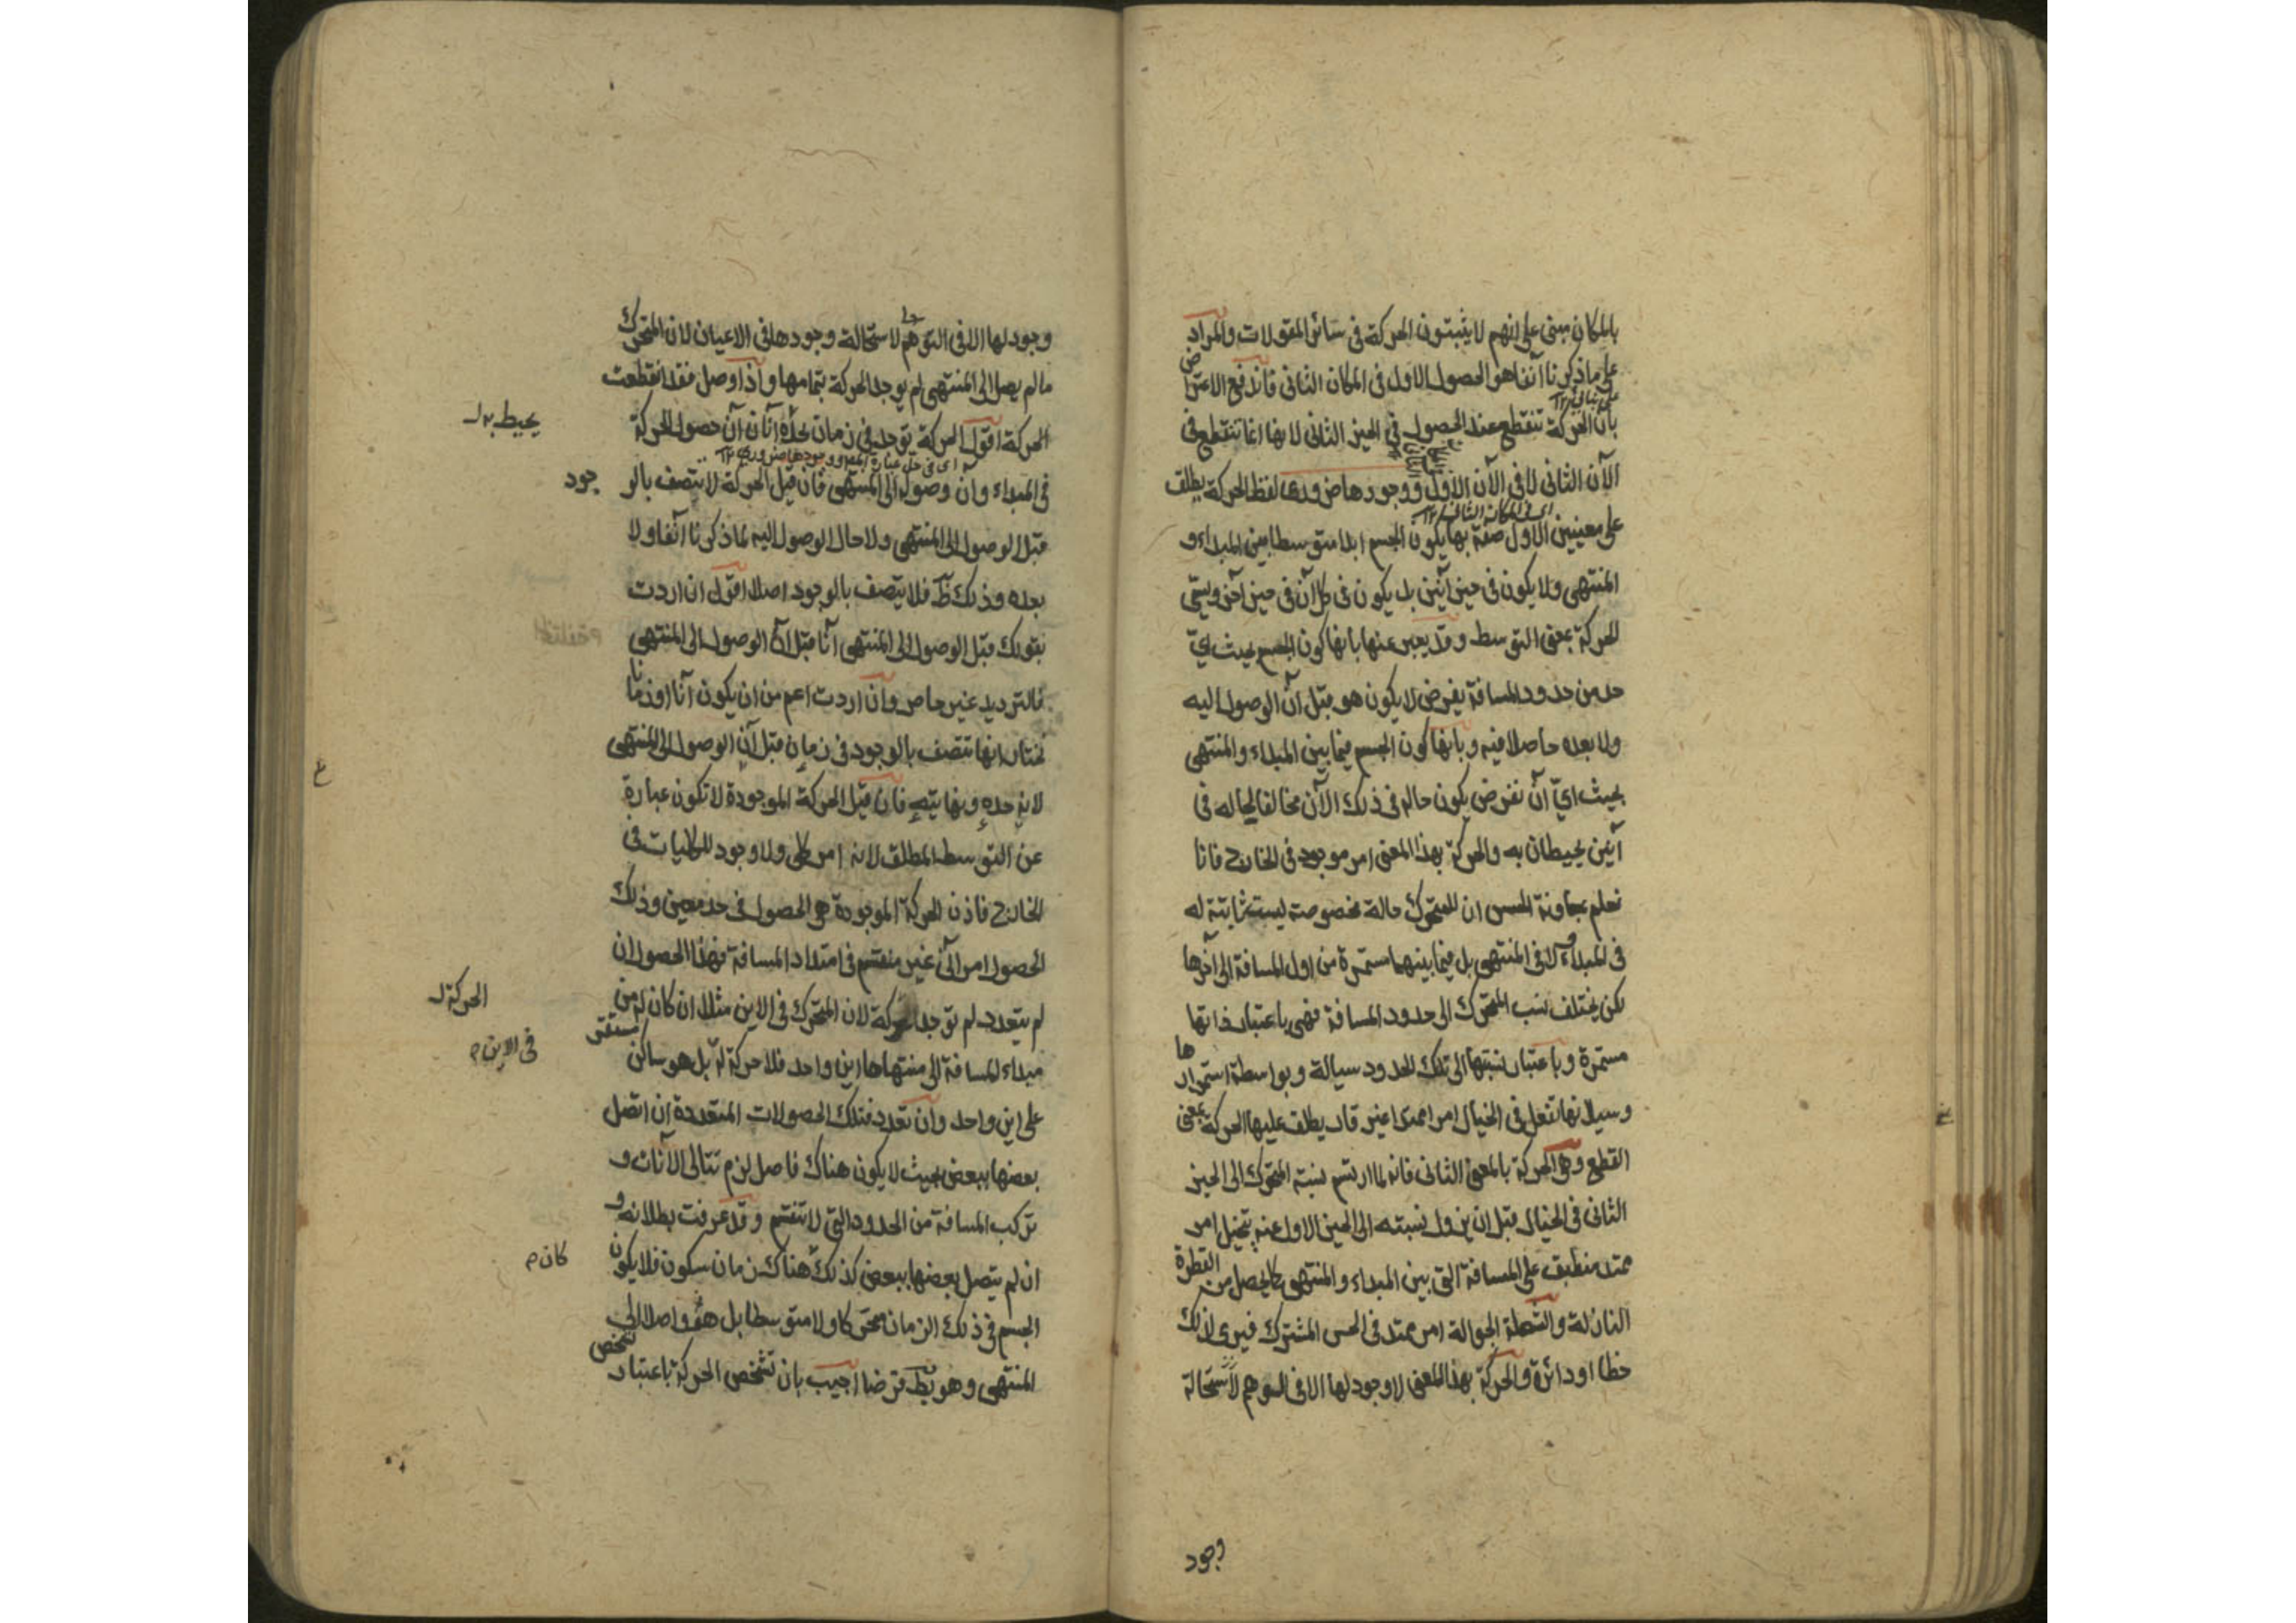 بالمكان مبنى على انهم لا يثبتون الحركة فى سائر المقولات والمراد
على ما ذكرنا آنفا هو الحصول الاول فى المكان الثانى فاندفع الاعتراض
بان الحركة تنقطع عند الحصول فى الحيز الثانى لانها انما تنقطع فى
الآن الثانى لا فى الآن الاول ووجودها ضرورى لفظ الحركة يطلق
اى فى المكان الثانى ١٢
على معنيين الاول صفة بها يكون الجسم ابدا متوسطا بين المبداء و
المنتهى ولا يكون فى حيز آنين بل يكون فى كل آن فى حيز آخر ويسمى
الحركة بمعنى التوسط وقد يعبر عنها بانها كون الجسم بحيث اىّ
حد من حدود المسافة يفرض لا يكون هو قبل آن الوصول اليه
ولا بعده حاصلا فيه وبانها كون الجسم فيما بين المبداء والمنتهى
بحيث اىّ آن نفرض يكون حاله فى ذلك الآن مخالفا لحاله فى
آنين يحيطان به والحركة بهذا المعنى امر موجود فى الخارج فانا
نعلم بمعاونة الحس ان للمتحرك حالة مخصوصة ليست ثابتة له
فى المبداء ولا فى المنتهى بل فيما بينهما مستمرة من اول المسافة الى آخرها
لكن يختلف نسب المتحرك الى حدود المسافة فهى باعتبار ذاتها
مستمرة وباعتبار نسبتها الى تلك الحدود سيالة وبواسطة استمرارها
وسيلانها تفعل فى الخيال امرا ممتدا غير قار يطلق عليها الحركة بمعنى
القطع وهى الحركة بالمعنى الثانى فانه لما ارتسم نسبة المتحرك الى الحيز
الثانى فى الخيال قبل ان يزول نسبته الى الحيز الاول عنه يتخيل امر
ممتد منطبق على المسافة التى بين المبداء والمنتهى كما يحصل من القطرة
النازلة والشعلة الجوالة امر ممتد فى الحس المشترك فيرى لذلك
خطا او دائرة والحركة بهذا المعنى لا وجود لها الا فى التوهم لاستحالة
وجود
وجود لها الا فى التوهم لاستحالة وجودها فى الاعيان لان المتحرك
ما لم يصل الى المنتهى لم يوجد الحركة بتمامها واذا وصل فقد انقطعت
الحركة اقول الحركة توجد فى زمان يحده آنان آن حصول الحركة
يحيط به
فى المبداء وآن وصوله الى المنتهى فان قيل الحركة لا تتصف بالوجود
قبل الوصول الى المنتهى ولا حال الوصول اليه لما ذكرنا آنفا ولا
بعده وذلك ظ فلا يتصف بالوجود اصلا اقول ان اردت
بقولك قبل الوصول الى المنتهى آنا قبل آن الوصول الى المنتهى
فالترديد غير حاصر وان اردت اعم من ان يكون آنا او زمانا
نختار انها تتصف بالوجود فى زمان قبل آن الوصول الى المنتهى
لانه حده ونهايته فان قيل الحركة الموجودة لا تكون عبارة
عن التوسط المطلق لانه امر كلى ولا وجود للكليات فى
الخارج فاذن الحركة الموجودة هو الحصول فى حد معين وذلك
الحصول امر آنى غير منقسم فى امتداد المسافة فهذا الحصول ان
لم يتعدد لم توجد حركة لان المتحرك فى الاين مثلا ان كان له من
الحركة
مبداء المسافة الى منتهاها اين واحد فلا حركة له بل هو ساكن مستقر
فى الاين م
على اين واحد وان تعدد فتلك الحصولات المتعددة ان اتصل
بعضها ببعض بحيث لا يكون هناك فاصل لزم تتالى الآنات و
تركب المسافة من الحدود التى لا تنقسم وقد عرفت بطلانه و
ان لم يتصل بعضها ببعض كذلك هناك زمان سكون فلا يكون
كان م
الجسم فى ذلك الزمان متحركا ولا متوسطا بل هو واصلا الى
المنتهى وهو بط فرضا اجيب بان تشخص الحركة باعتبار تشخص